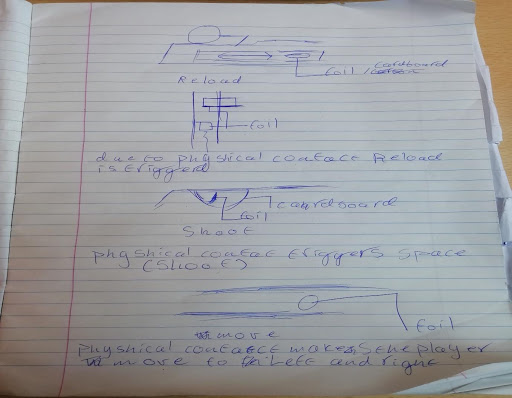 cardboard
foil /
Reload
foil
due to physhical contact Reload
is triggerd
cardboard
foil
Shoot
physhical contact triggers space
(Shoot)
foil
move
physhical contact makes the player
move to Left and right